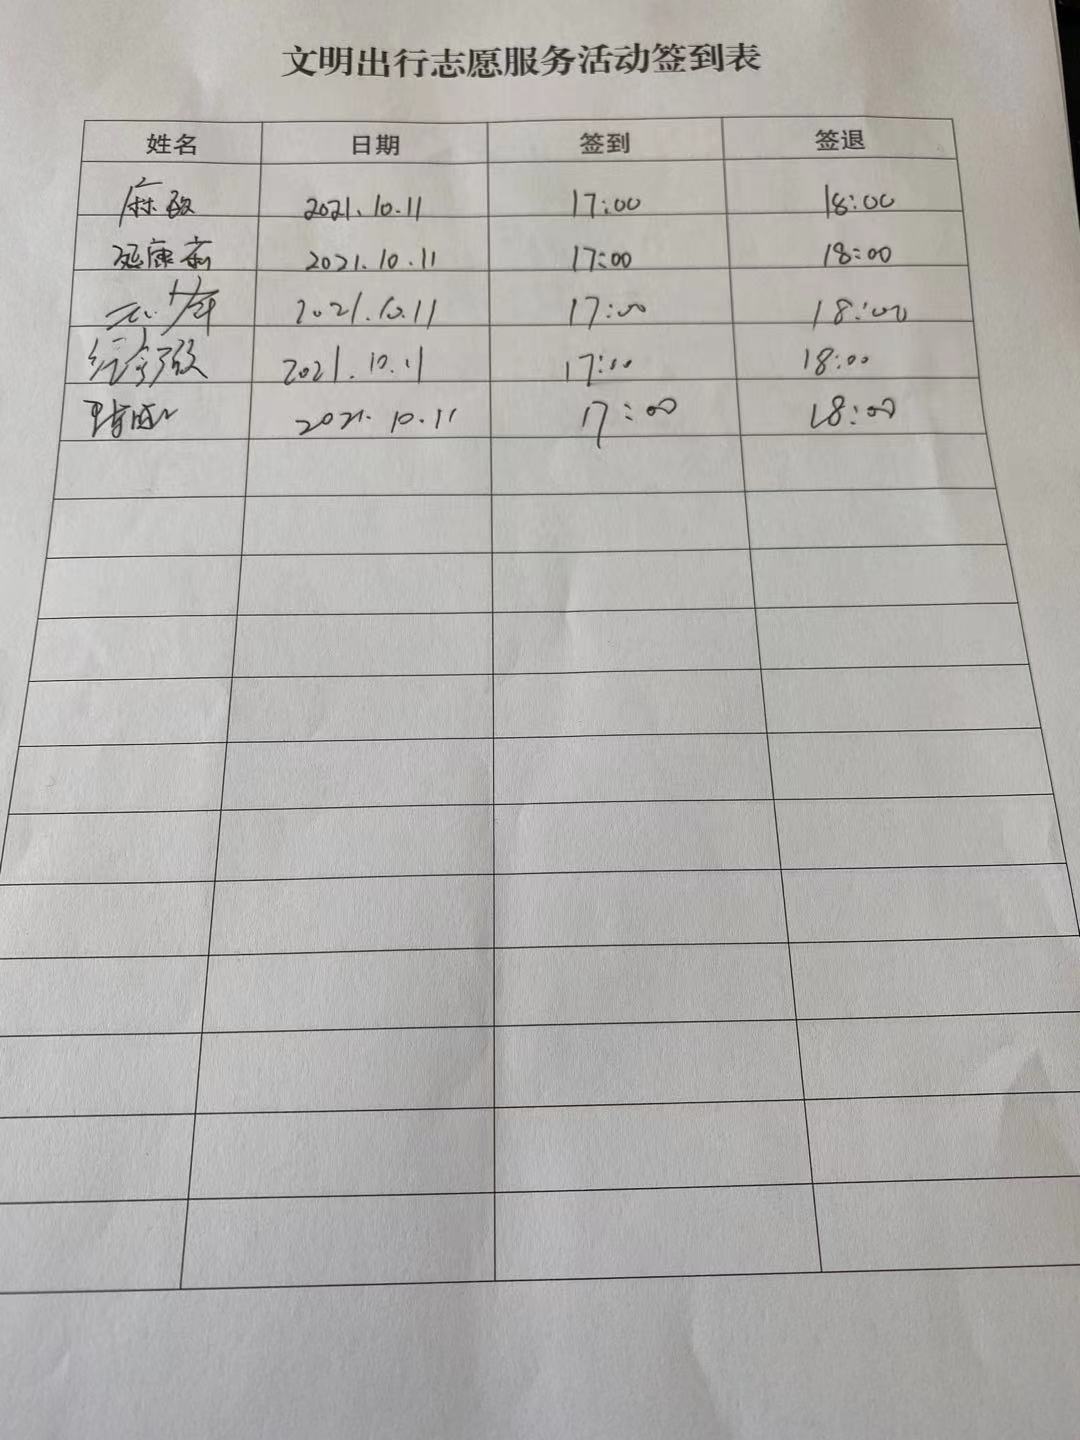 文明出行志愿服务活动签到表
姓名 日期 签到 签退
麻敏 2021.10.11 17:00 18:00
延康 2021.10.11 17:00 18:00
2021.10.11 17:00 18:00
2021.10.11 17:00 18:00
2021.10.11 17:00 18:00